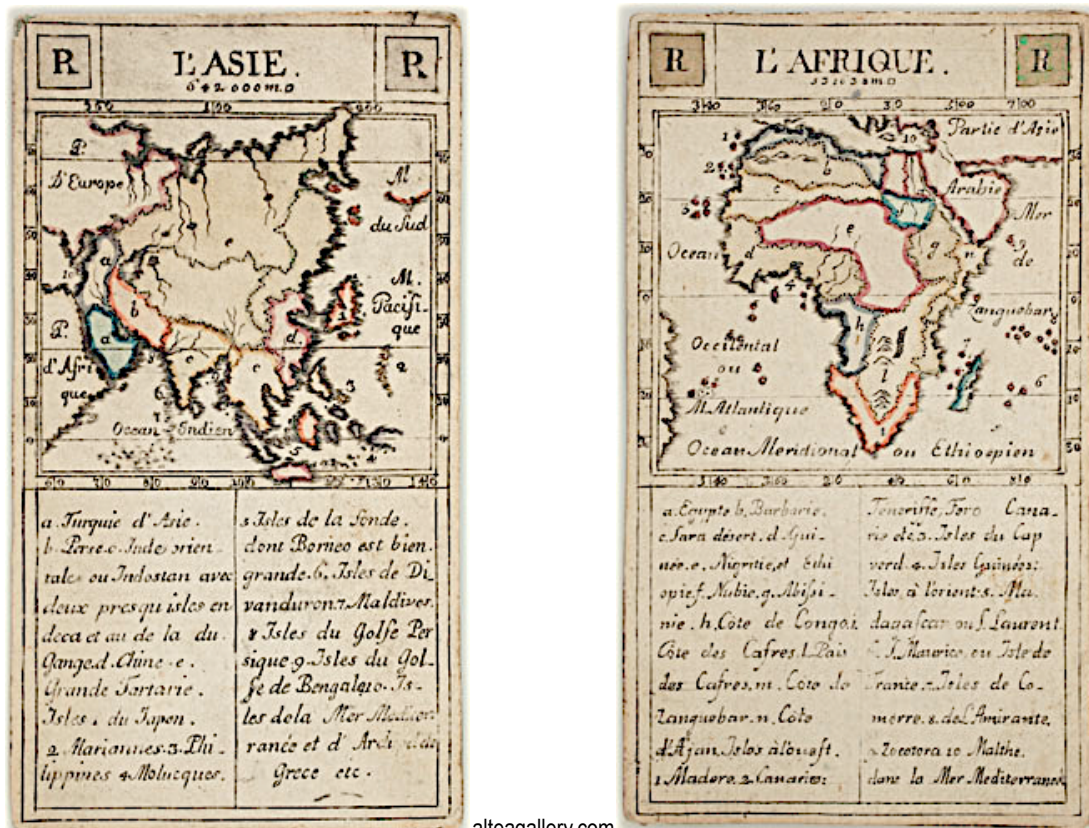 R
L'ASIE.
R
642000 m.□
P.
D'Europe
M.
du Sud
a
e
b
M.
Pacifi-
que
P.
d'Afri
que
a
c
c
d.
1
2
3
4
5
6
7
8
Ocean Indien
a. Turquie d'Asie.
b. Perse. c. Inde orien-
tale ou Indostan avec
deux presqu'isles en
deca et au de la du.
Gange. d. Chine. e.
Grande Tartarie.
Isles 1. du Japon.
2. Mariannes. 3. Phi-
lippines 4. Molucques.
5 Isles de la Sonde.
dont Borneo est bien.
grande. 6. Isles de Di-
vanduron. 7. Maldives.
8 Isles du Golfe Per
sique 9. Isles du Gol-
fe de Bengale 10. Is-
les dela Mer Mediter-
ranée et d'
Grece etc.
R
L'AFRIQUE.
R
Partie d'Asie
Arabie
Mer
de
Zanguebar
Ocean
Occidental
ou
M. Atlantique
Ocean Meridional ou Ethioepien
1
2
10
b
c
e
d
g
n
4
h
l
7
6
a. Egypte b. Barbarie.
c. Sara désert. d. Gui-
née. e. Nigritie, et Ethi
opie f. Nubie. g. Abissi-
nie. h. Côte de Congo. i.
Côte des Cafres. l. Païs
des Cafres. m. Cote de
Zanguebar. n. Côte
d'Ajan. Isles à l'ouest.
1. Madere. 2. Canaries:
Teneriffe, Fero Cana-
rie etc. 3. Isles du Cap
verd. 4. Isles Guinées:
Isles, à l'orient. 5. Ma-
dagascar ou S. Laurent
6. I. Maurice, ou Isle de
France. 7. Isles de Co-
morre. 8. de L'Amirante.
Zocotora 10 Malthe.
dans la Mer Mediterranée
alteagallery.com